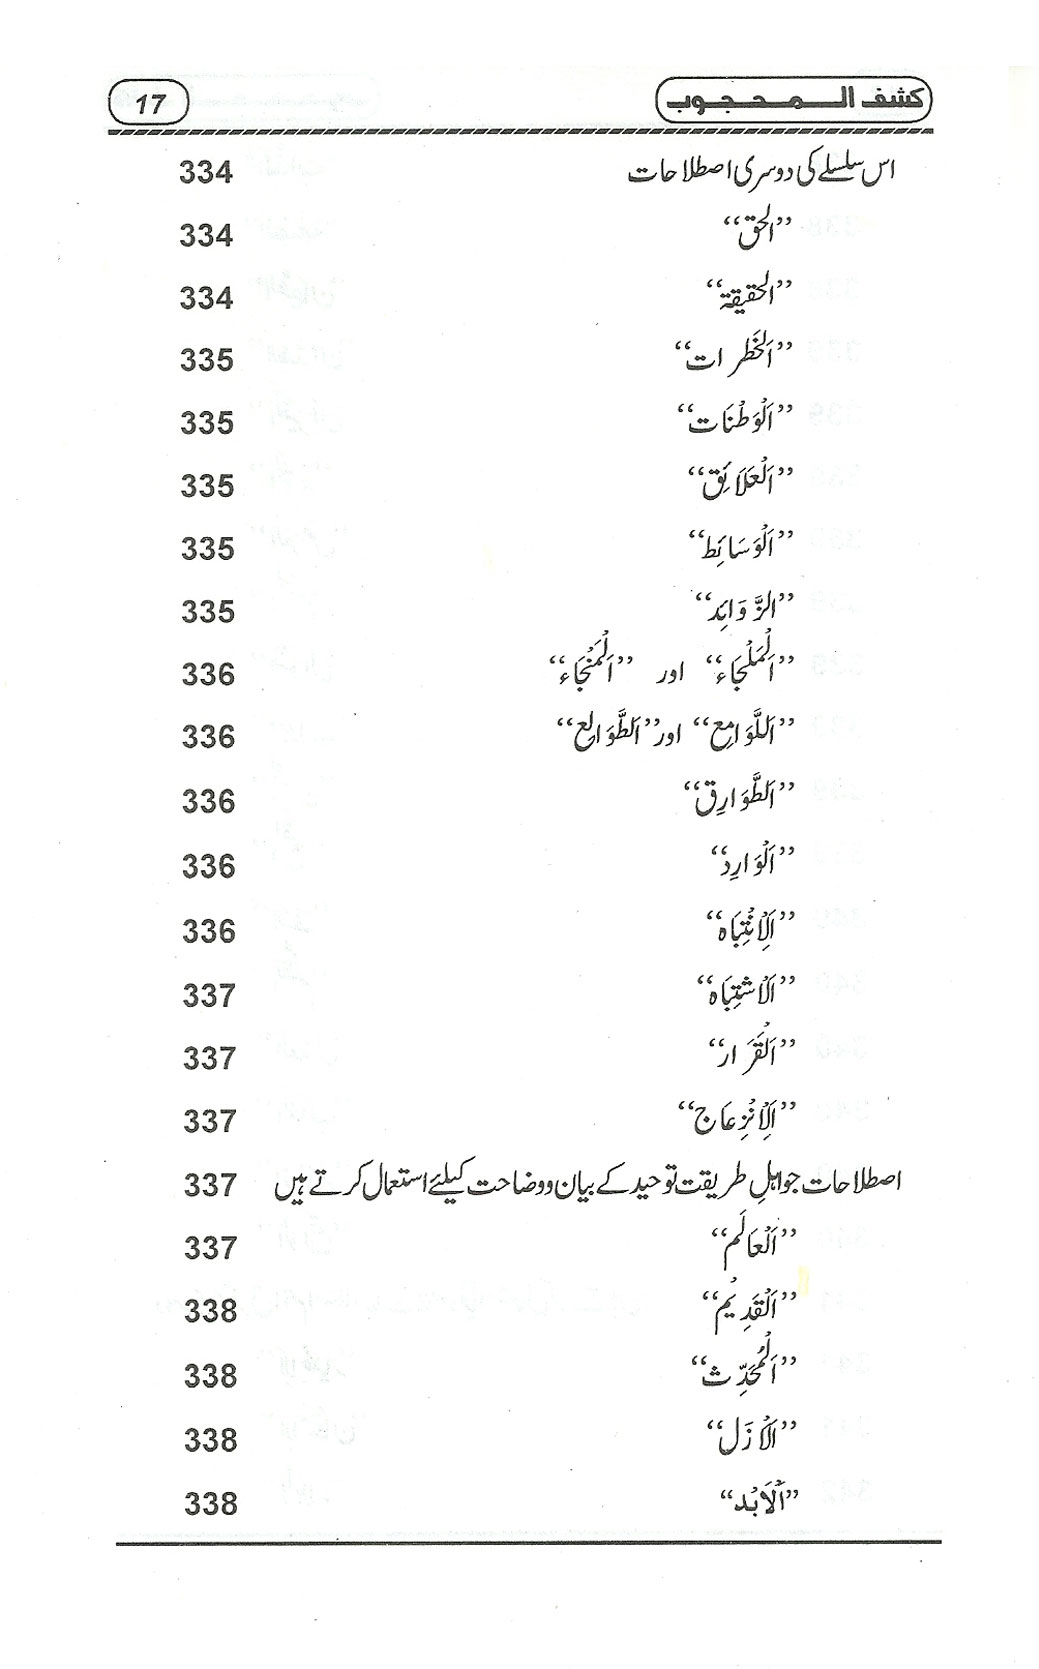 كشف المحجوب 17
اس سلسلے کی دوسری اصطلاحات 334
”الحق“ 334
”الحقیقۃ“ 334
”اَلخَطرات“ 335
”اَلْوَطْنَات“ 335
”اَلْعَلَائَق“ 335
”اَلْوَسَائِط“ 335
”الزَّوَائِد“ 335
”اَلْمَلْجَاء“ اور ”اَلْمَنْجَاء“ 336
”اَللَّوَامِع“ اور ”اَلطَّوَالِع“ 336
”اَلطَّوَارِق“ 336
”اَلْوَارِد“ 336
”اَلِانْتِبَاہ“ 336
”اَلْاشتِبَاہ“ 337
”اَلْقَرَار“ 337
”اَلِانْزِعَاج“ 337
اصطلاحات جو اہلِ طریقت توحید کے بیان و وضاحت کیلئے استعمال کرتے ہیں 337
”اَلْعَالَم“ 337
”اَلْقَدِیْم“ 338
”اَلْمُحَدِّث“ 338
”اَلْاَزَل“ 338
”اَلْاَبُد“ 338